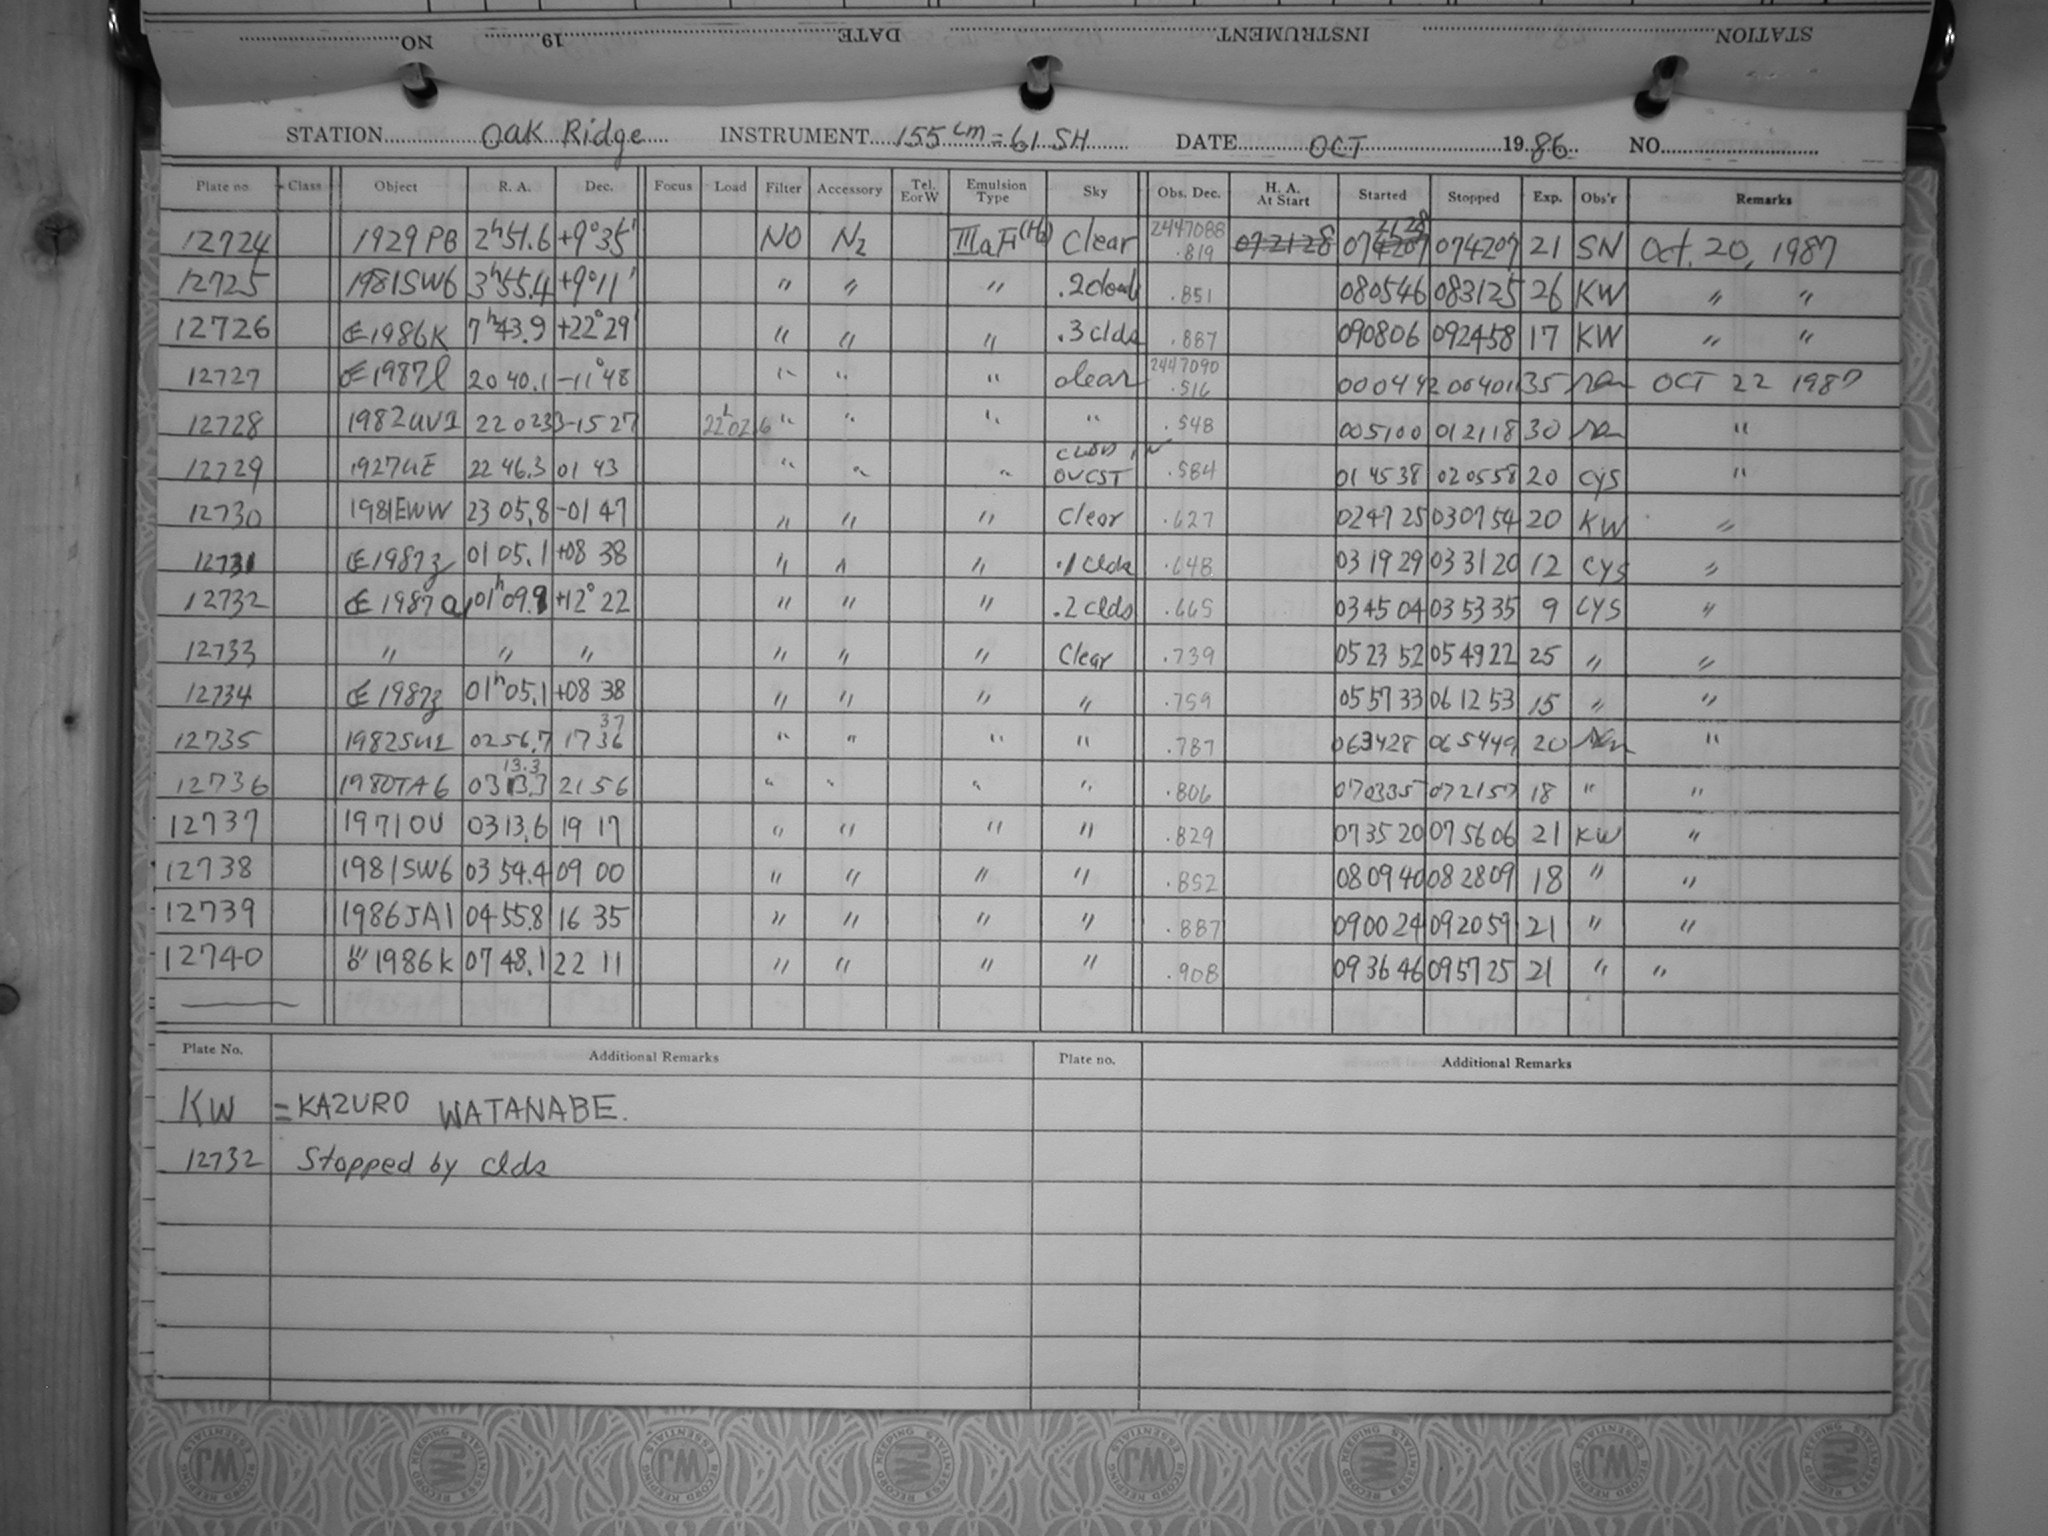 STATION INSTRUMENT DATE 19 NO.
STATION Oak Ridge INSTRUMENT 155 cm = 61 SH DATE OCT 1986 NO.
Plate no. Class Object R. A. Dec. Focus Load Filter Accessory Tel. EorW Emulsion Type Sky Obs. Dec. H. A. At Start Started Stopped Exp. Obs'r Remarks
12724 1929 PB 2h51.6 +9°35' NO N2 IIIaF(H2) Clear 2447088 .819 072128 072128 074207 21 SN Oct. 20, 1987
12725 1981SW6 3h55.4 +9°11' " " " .2 cloud .851 080546 083125 26 KW " "
12726 1986K 7h43.9 +22°29' " " " .3 clds .887 090806 092458 17 KW " "
12727 1987l 20 40.1 -11°48 " " " clear 2447090 .516 000442 004011 35 OCT 22 1987
12728 1982UV1 22 02 -15 27 22h02.6 " " " " .548 005100 012118 30 "
12729 1927UE 22 46.3 01 43 " " " OVCST .584 01 45 38 020558 20 CYS "
12730 1981EWW 23 05.8 -01 47 " " " Clear .627 0247 25 030754 20 KW "
12731 1987z 01 05.1 +08 38 " " " .1 clds .648 03 19 29 03 31 20 12 CYS "
12732 1987 01h09.9 +12° 22 " " " .2 clds .665 0345 04 03 53 35 9 CYS "
12733 " " " " " " Clear .739 05 23 52 05 49 22 25 " "
12734 1987z 01h05.1 +08 38 " " " " .759 05 57 33 06 12 53 15 " "
12735 1982SU1 02 56.7 17 36 37 " " " " .787 063428 065449 20 "
12736 1980TA6 03 13.3 13.3 21 56 " " " " .806 070335 072157 18 " "
12737 1971OU 0313.6 19 17 " " " " .829 0735 20 075606 21 KW "
12738 1981SW6 03 54.4 09 00 " " " " .852 08 09 40 08 2809 18 " "
12739 1986JA1 04 55.8 16 35 " " " " .887 0900 24 092059 21 " "
12740 1986k 07 48.1 22 11 " " " " .908 09 36 46 095725 21 " "
Plate No. Additional Remarks Plate no. Additional Remarks
KW = KAZURO WATANABE.
12732 Stopped by clds
WJ RECORD KEEPING ESSENTIALS